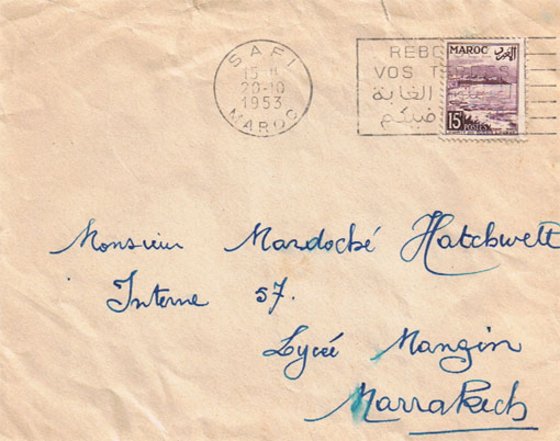 SAFI
15 H
20-10
1953
MAROC
REBO
VOS T
الغابة
MAROC المغرب
15F POSTES
Monsieur Mardoché Hatchwett
Interne 57.
Lycée Mangin
Marrakech